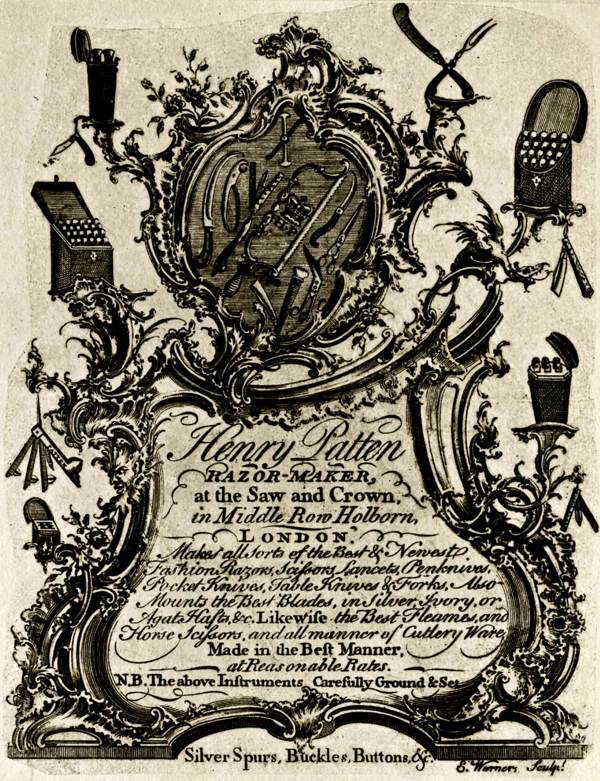 Henry Patten
RAZOR-MAKER,
at the Saw and Crown,
in Middle Row Holborn,
LONDON.
Makes all sorts of the Best & Newest
Fashion Razors, Scissors, Lancets, Penknives,
Pocket Knives, Table Knives & Forks, Also
Mounts the Best Blades, in Silver, Ivory, or
Agat Hafts, &c. Likewiſe the Best Fleames, and
Horse Sciſsors, and all manner of Cutlery Ware
Made in the Beſt Manner,
at Reasonable Rates.
N.B. The above Inſtruments Carefully Ground & Set
Silver Spurs, Buckles, Buttons, &c.
E. Warner, Sculp.